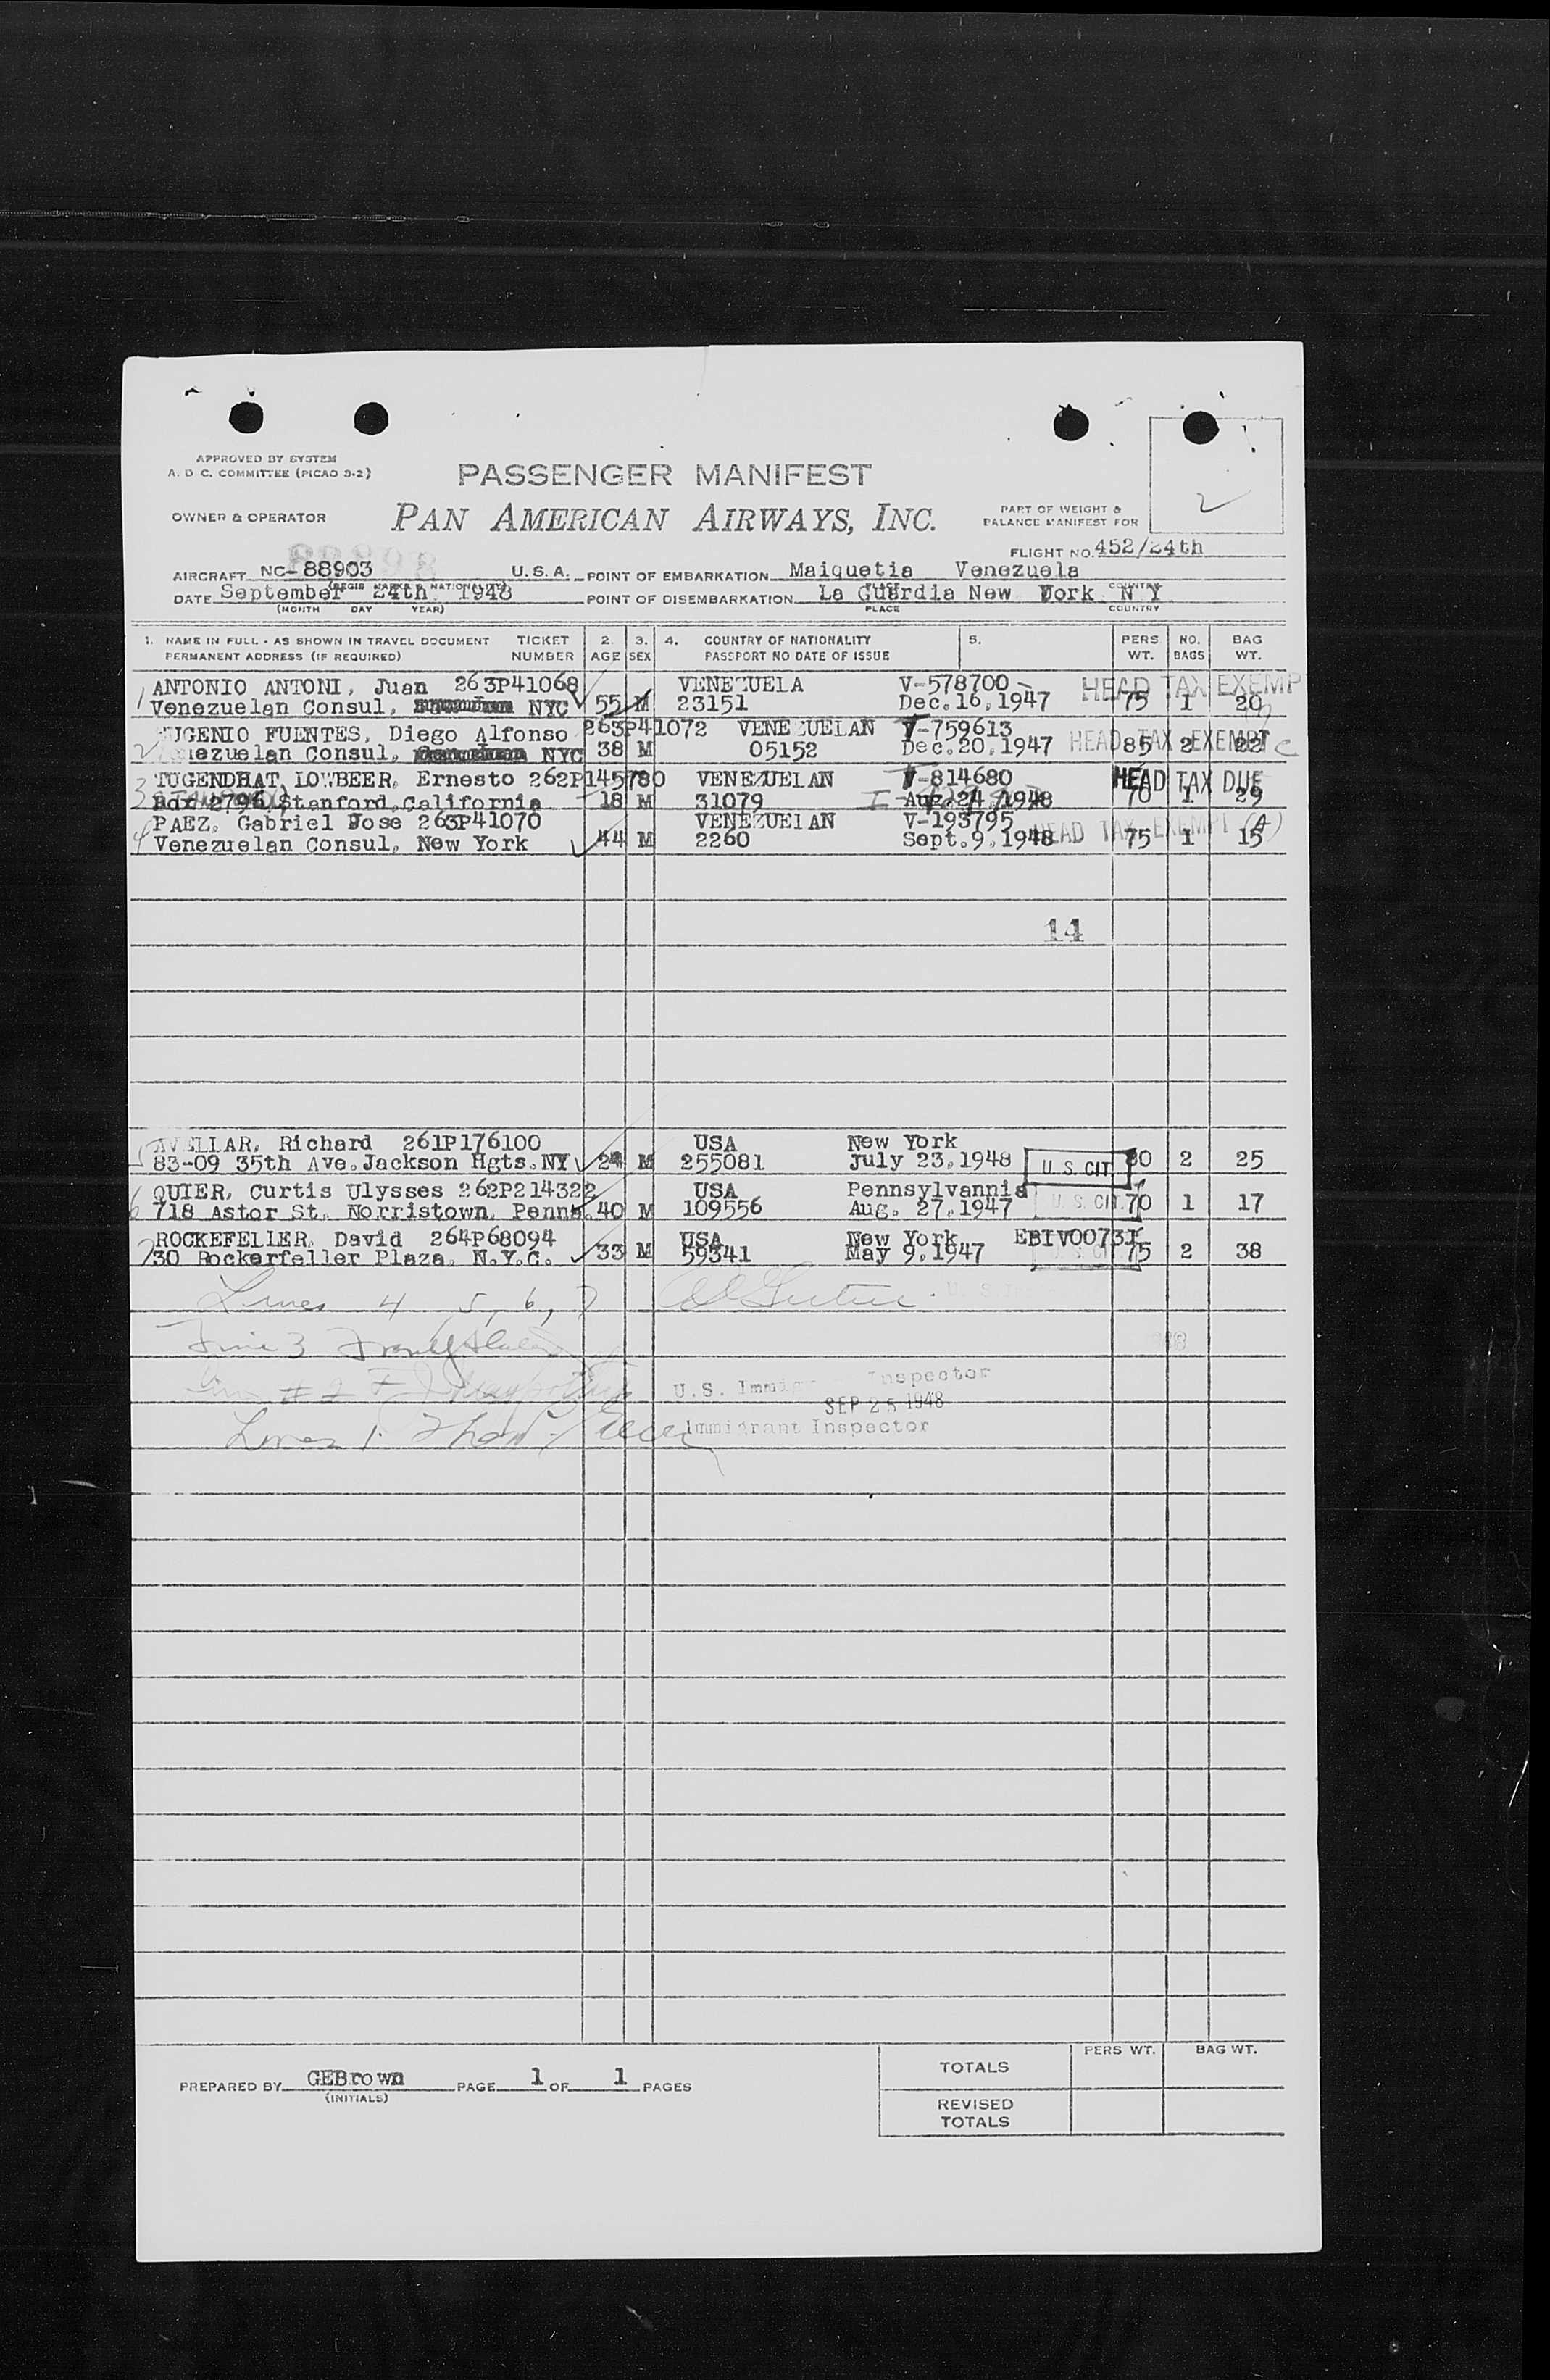 APPROVED BY SYSTEM
A. D C. COMMITTEE (PICAO 3-2)
PASSENGER MANIFEST
2
OWNER & OPERATOR
PAN AMERICAN AIRWAYS, INC.
PART OF WEIGHT &
BALANCE MANIFEST FOR
FLIGHT NO. 452/24th
AIRCRAFT NC-88903 U.S.A. POINT OF EMBARKATION Maiquetia Venezuela
(REGIS MARKS & NATIONALITY) PLACE COUNTRY
DATE September 24th 1948 POINT OF DISEMBARKATION La Guardia New York N Y
(MONTH DAY YEAR) PLACE COUNTRY
1. NAME IN FULL - AS SHOWN IN TRAVEL DOCUMENT TICKET 2. 3. 4. COUNTRY OF NATIONALITY 5. PERS. NO. BAG
PERMANENT ADDRESS (IF REQUIRED) NUMBER AGE SEX PASSPORT NO DATE OF ISSUE WT. BAGS WT.
ANTONIO ANTONI, Juan 263P41068 VENEZUELA V-578700 HEAD TAX EXEMP
1 Venezuelan Consul, NYC 55 M 23151 Dec.16,1947 75 1 20
EUGENIO FUENTES, Diego Alfonso 263P41072 VENEZUELAN V-759613
2 Venezuelan Consul, NYC 38 M 05152 Dec.20,1947 HEAD TAX EXEMPT 85 2 22 C
TUGENDHAT LOWBEER, Ernesto 262P145780 VENEZUELAN V-814680 HEAD TAX DUE
3 Box 2796, Stanford, California 18 M 31079 Aug.24,1948 70 1 29
PAEZ, Gabriel Jose 263P41070 VENEZUELAN V-193795 HEAD TAX EXEMPT (A)
4 Venezuelan Consul, New York 44 M 2260 Sept.9,1948 75 1 15
14
AVELLAR, Richard 261P176100 USA New York
5 83-09 35th Ave.Jackson Hgts.NY 24 M 255081 July 23,1948 U.S. CIT 80 2 25
QUIER, Curtis Ulysses 262P214322 USA Pennsylvannia
6 718 Astor St. Norristown, Penna. 40 M 109556 Aug. 27,1947 U. S. CIT. 70 1 17
ROCKEFELLER, David 264P68094 USA New York EBIV00731
7 30 Rockerfeller Plaza, N.Y.C. 33 M 59341 May 9,1947 U. S. CIT. 75 2 38
Lines 4, 5, 6, 7
Line 3
Line # 2 U.S. Immigrant Inspector
SEP 25 1948
Lines 1. Immigrant Inspector
PERS WT. BAG WT.
TOTALS
PREPARED BY GEBrown PAGE 1 OF 1 PAGES
(INITIALS)
REVISED
TOTALS